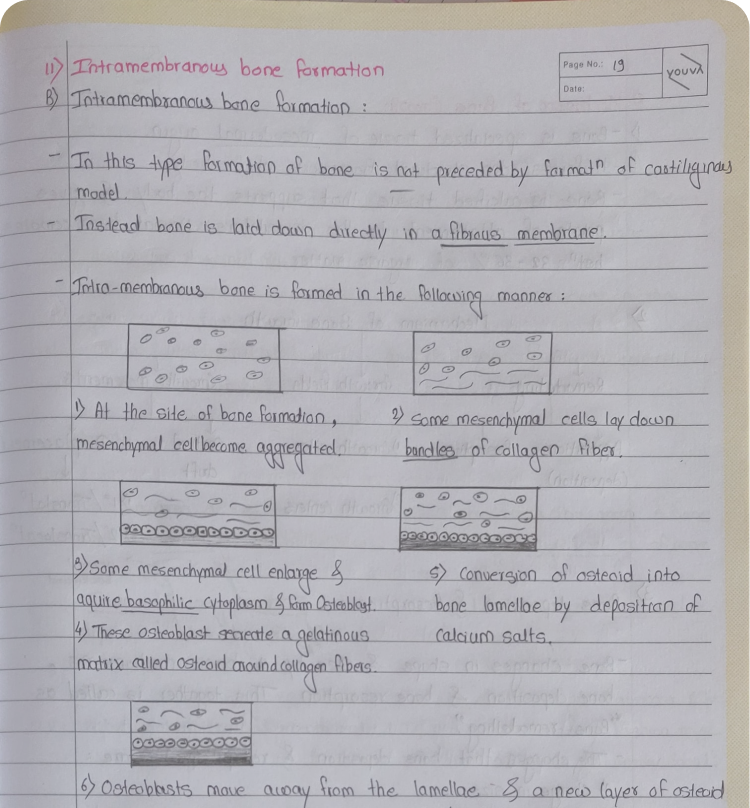 Page No.: 19
Date:
youva
11) Intramembranous bone formation
B) Intramembranous bone formation :
- In this type formation of bone is not preceded by formatn of cartiliginous
model.
- Instead bone is laid down directly in a fibrous membrane.
- Intra-membranous bone is formed in the following manner :
1) At the site of bone formation,
mesenchymal cell become aggregated.
2) Some mesenchymal cells lay down
bandles of collagen fiber.
3) Some mesenchymal cell enlarge &
aquire basophilic cytoplasm & form Osteoblast.
4) These osteoblast secreate a gelatinous
matrix called osteoid around collagen fibers.
5) Conversion of osteoid into
bone lamellae by deposition of
calcium salts.
6) Osteoblasts move away from the lamellae & a new layer of osteoid